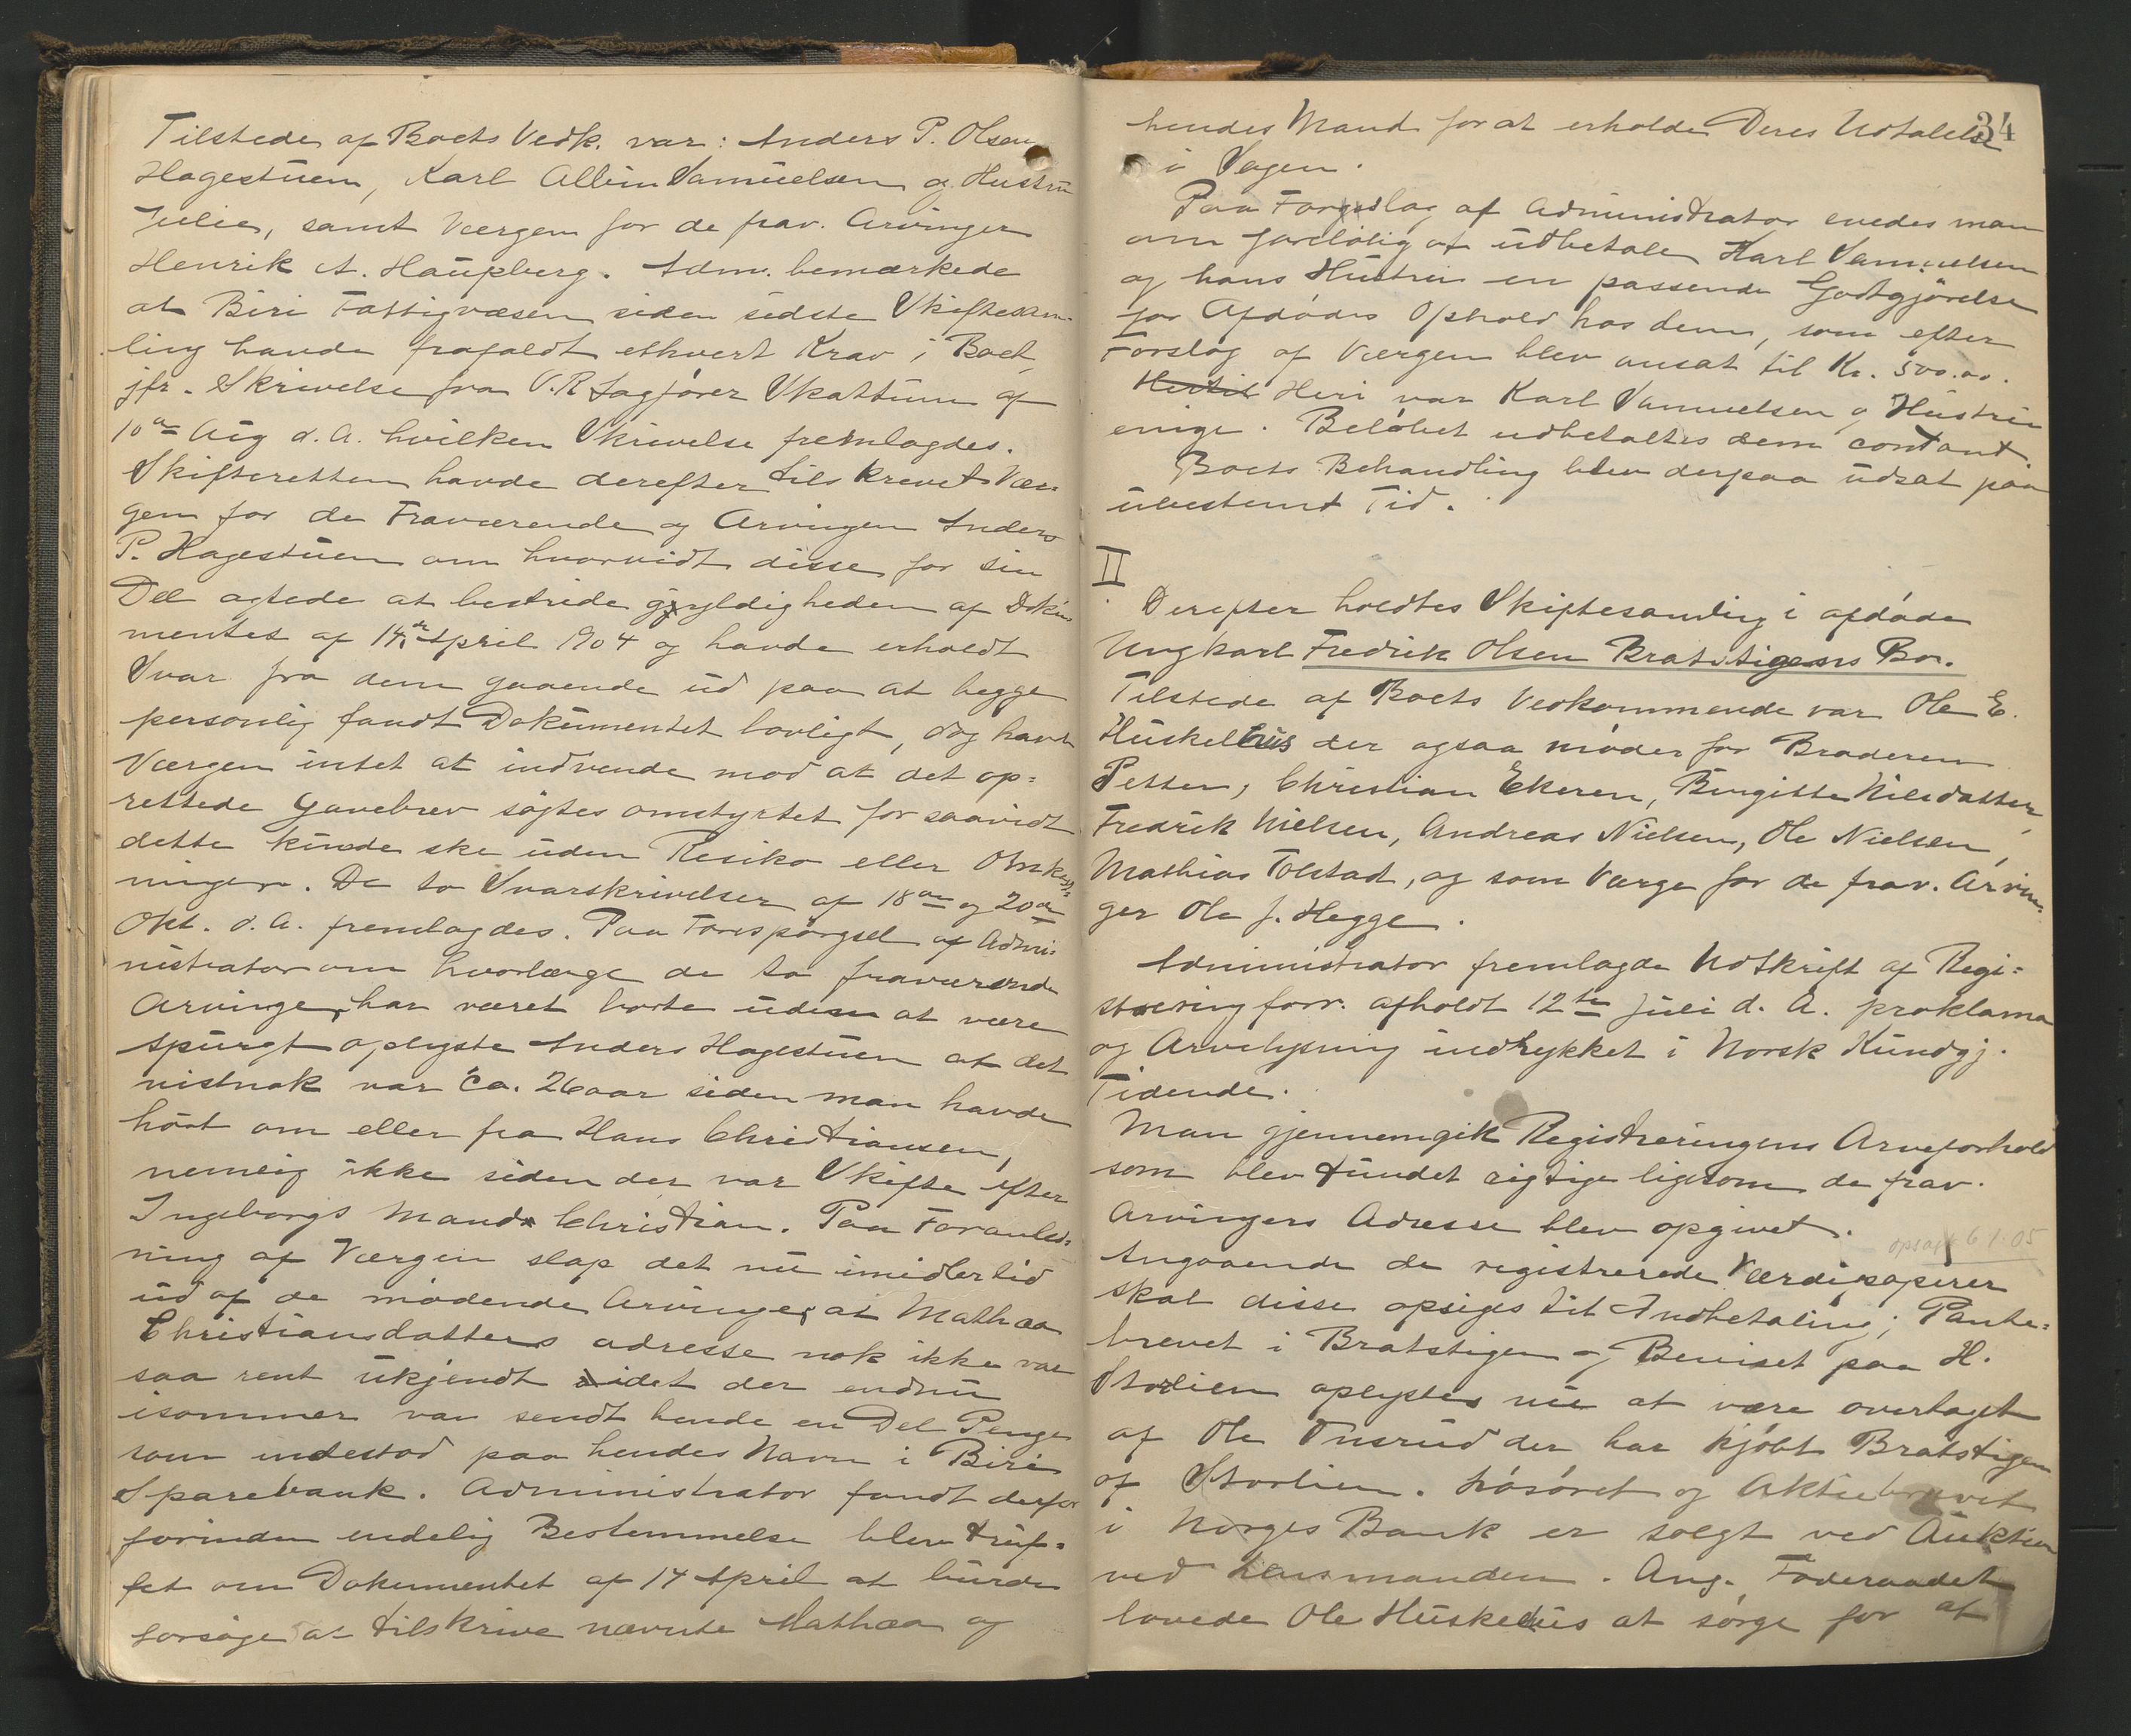 Tilstede af Boets Vedk. var: Anders P. Olsen
Hagestuen, Karl Albin Samuelsen og Hustru
Julie, samt Værgen for de frav. Arvinger
Henrik A. Haugsberg. Adm. bemærkede
at Biri Fattigvæsen siden sidste Skiftesam-
ling havde frafaldt ethvert Krav i Boet
jfr. Skrivelse fra O.R Sagfører Skattum af
10de Aug d. A. hvilken Skrivelse fremlagdes.
Skifteretten havde derefter tilskrevet Vær-
gen for de Fraværende og Arvingen Anders
P. Hagestuen om hvorvidt disse for sin
Del agtede at bestride gyldigheden af Doku-
mentet af 14de April 1904 og havde erholdt
Svar fra dem gaaende ud paa at begge
personlig fandt Dokumentet lovligt, dog havde
Værgen intet at indvende mod at det op=
rettede Gavebrev søgtes omstyrtet for saavidt
dette kunde ske uden Resiko eller Omkost=
ninger. De to Svarskrivelser af 18de og 20de
Okt. d. A. fremlagdes. Paa Forespørgsel af Admi=
nistrator om hvorlænge de to fraværende
Arvinger har været borte uden at være
spurgt oplyste Anders Hagestuen at det
vistnok var ca. 26 aar siden man havde
hørt om eller fra Hans Christiansen,
nemlig ikke siden der var Skifte efter
Ingeborgs Mand Christian. Paa Foranled=
ning af Værgen slap det nu imidlertid
ud af de mødende Arvinger at Mathæa
Christiansdatters adresse nok ikke var
saa rent ukjendt idet der endnu
isommer var sendt hende en Del Penge
som indestod paa hendes Navn i Biri
Sparebank. Administrator fandt derfor
forinden endelig Bestemmelse blev truf=
fet om Dokumentet af 14 April at burde
forsøge at tilskrive nævnte Mathæa og
34
hendes Mand for at erholde Deres Udtalelse
i Sagen.
Paa Forslag af Administrator enedes man
om foreløbig at udbetale Karl Samuelsen
og hans Hustru en passende Godtgjørelse
for Afdødes Ophold hos dem, som efter
Forslag af Værgen blev ansat til Kr. 500.00.
Hertil Heri var Karl Samuelsen og Hustru
enige. Beløbet udbetaltes dem contant.
Boets Behandling blev derpaa udsat paa
ubestemt Tid.
II
Derefter holdtes Skiftesamling i afdøde
Ungkarl Fredrik Olsen Bratstigens Bo.
Tilstede af Boets Vedkommende var Ole E.
Huskelhus der ogsaa møder for Broderen
Petter, Christian Ekeren, Birgitte Nilsdatter,
Fredrik Nielsen, Andreas Nielsen, Ole Nielsen,
Mathias Tolstad, og som Værge for de frav. Arvin=
ger Ole J. Hegge.
Administrator fremlagde Udskrift af Regi=
streringforr. afholdt 12te Juli d. A. proklama
og Arvelysning indrykket i Norsk Kundgj.
Tidende.
Man gjennemgik Registreringens Arveforhold
som blev fundet rigtige ligesom de frav.
Arvingers Adresse blev opgivet.
opsagt 6/1.05
Angaaende de registrerede Værdipapirer
skal disse opsiges til Indbetaling; Pante=
brevet i Bratstigen og Beviset paa H.
Storlien oplystes nu at være overtaget
af Ole Tusrud der har kjøbt Bratstigen
af Storlien. Løsøret og Aktiebrevet
i Norges Bank er solgt ved Auktion
ved Lensmanden. Ang. Føderaadet
lovede Ole Huskelhus at sørge for at